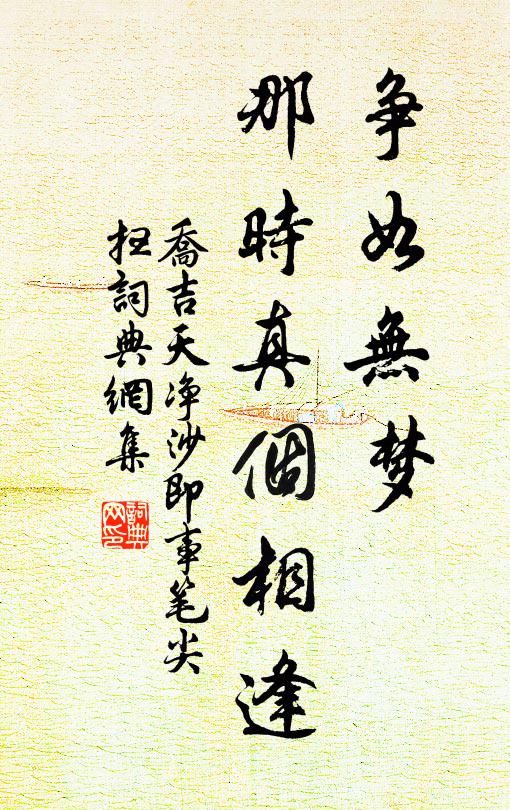 争如無梦
那時真個相逢
喬吉天净沙即事笔尖
扫詞典網集
詞典网印